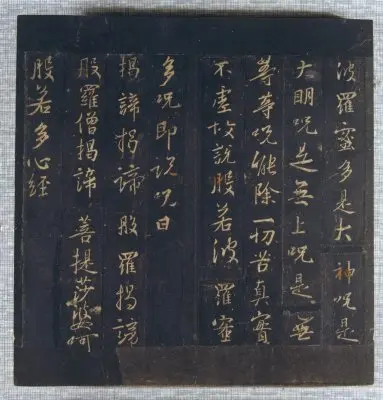 波羅蜜多是大神呪是
大明呪是無上呪是無
等等呪能除一切苦真實
不虛故說般若波羅蜜
多呪即說呪曰
揭諦揭諦般羅揭諦
般羅僧揭諦菩提莎婆呵
般若多心經